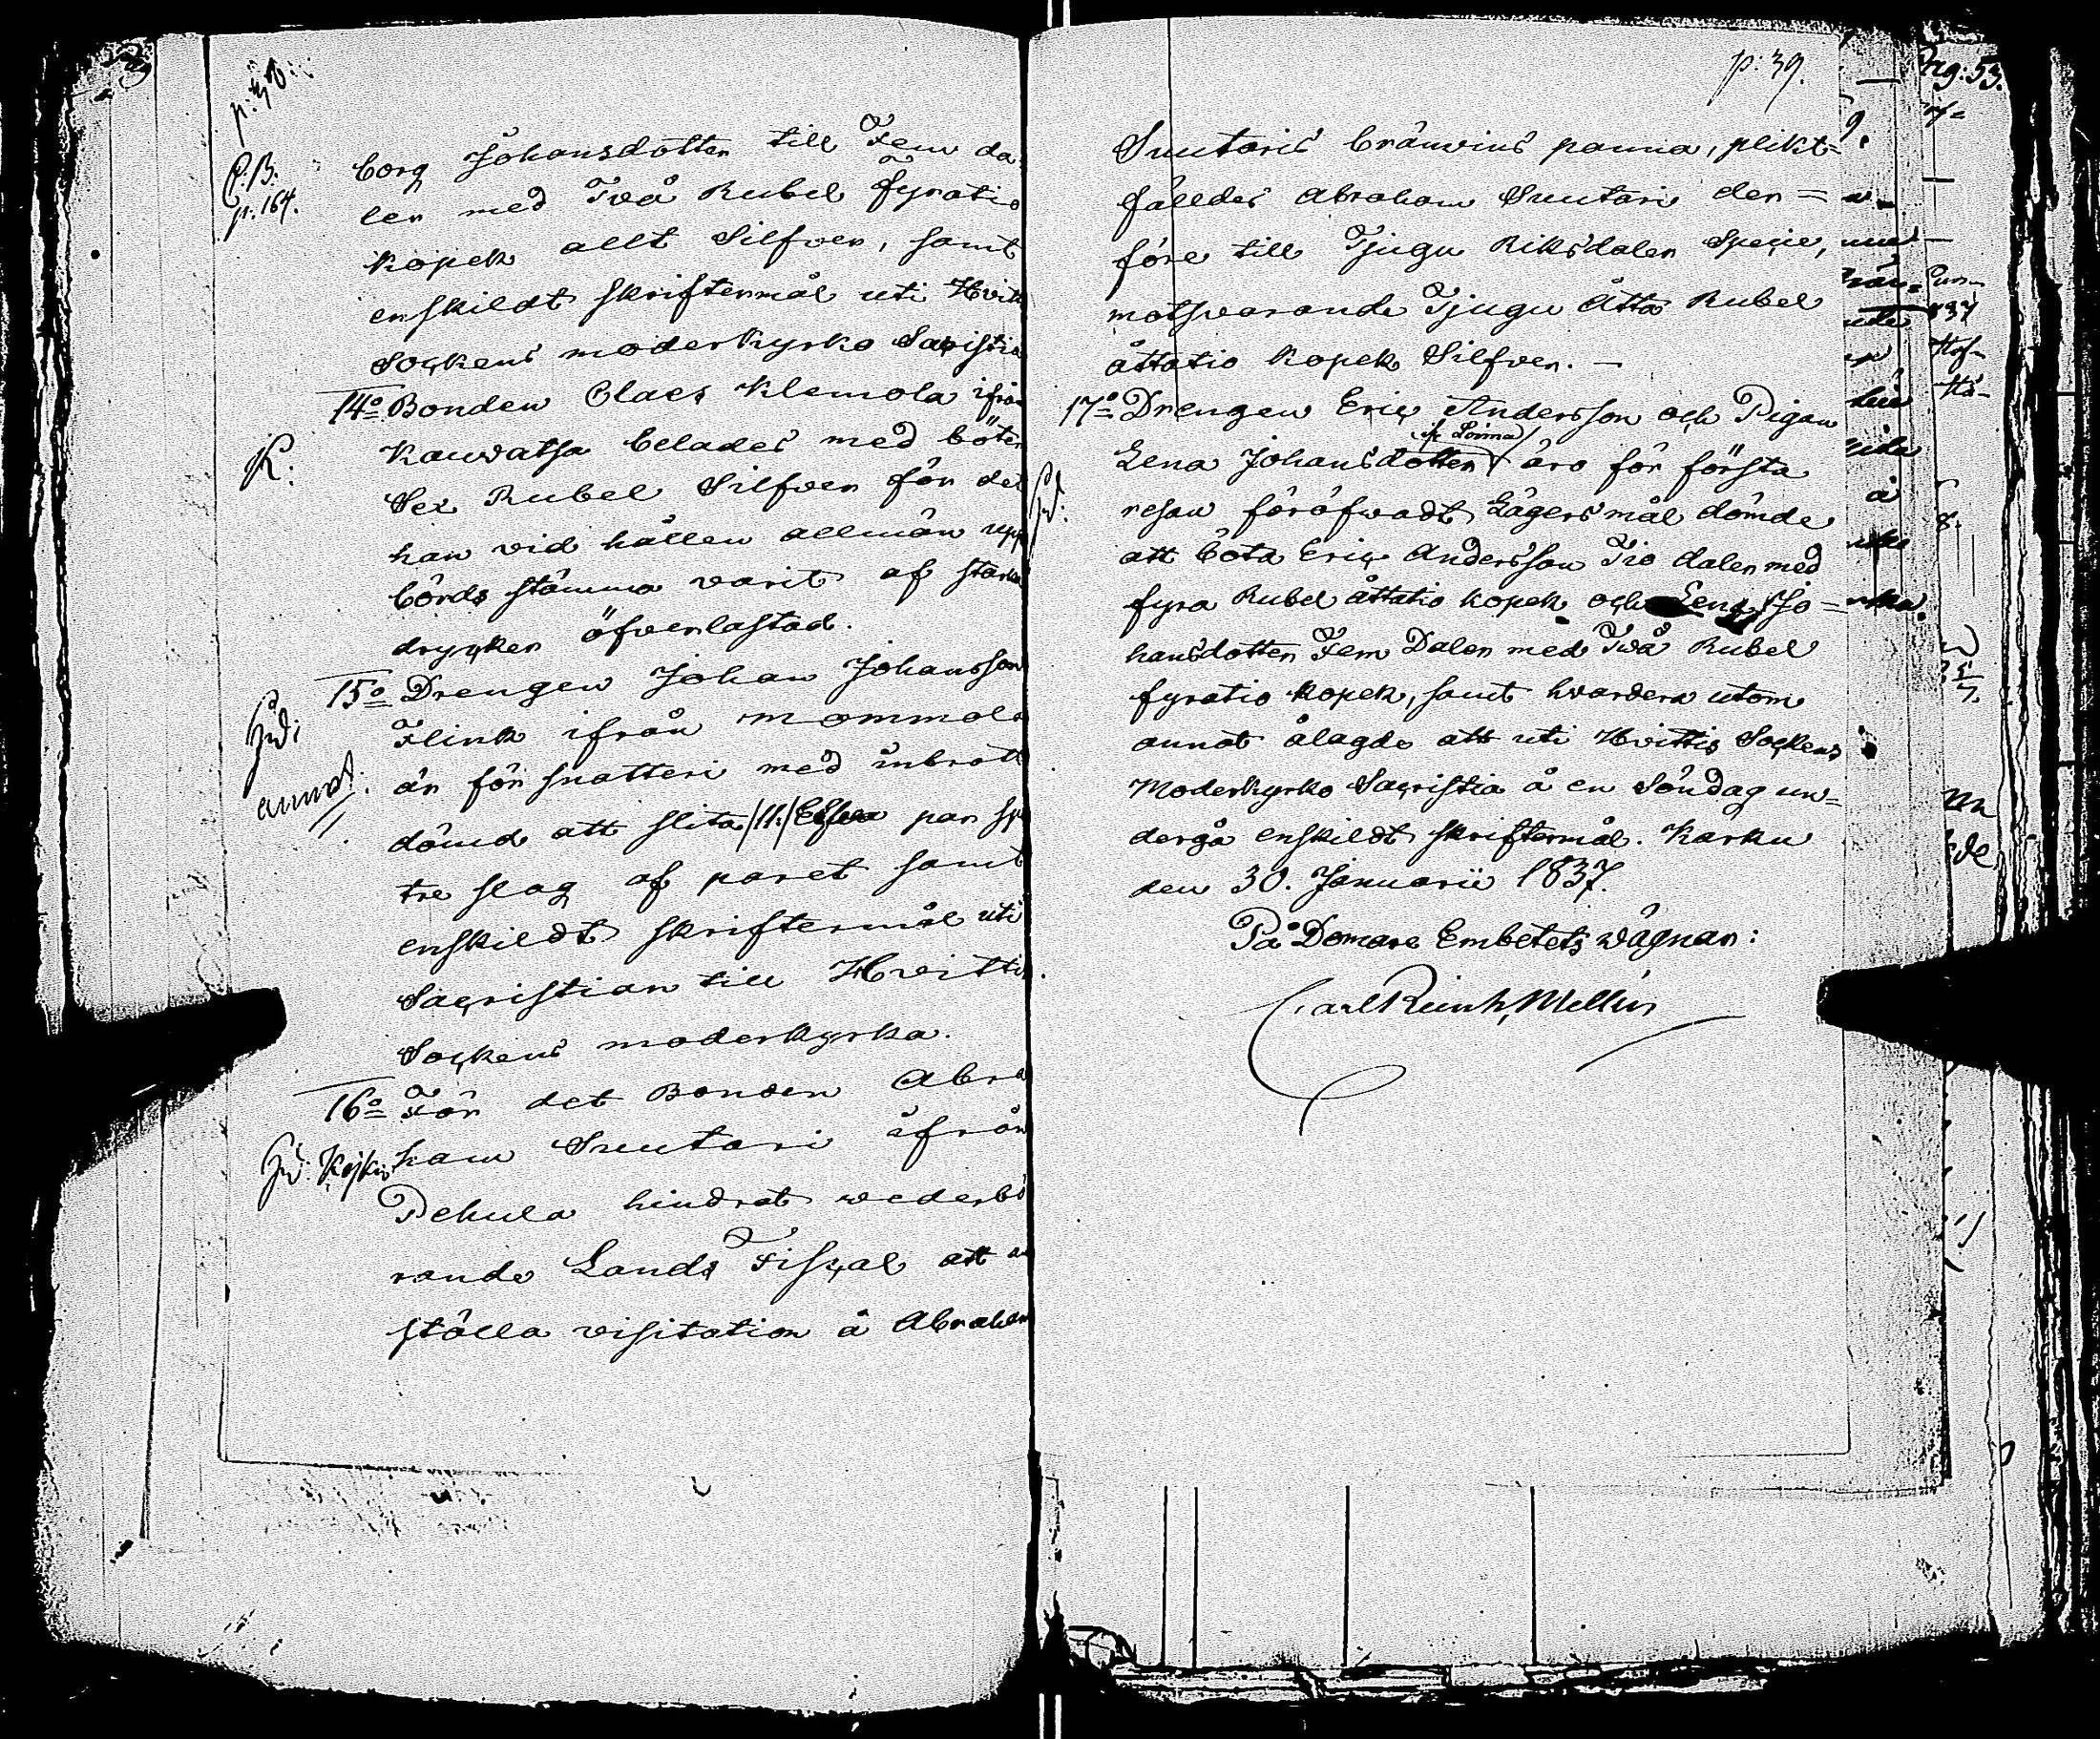 p: 38
P.B.
p. 164.
borg Johansdotter till Fem da
ler med Två Rubel fyratio
kopek allt Silfver, samt
enskildt skriftermål uti Hvitt
Sockens moderkyrko Sacristia
14o Bonden Claes Klemola ifrån
K:
Kauvatsa belades med böter
Sex Rubel Silfver för det
han vid hållen allmän upp
börds stämma varit af starka
drycker öfverlastad.
15o Drengen Johan Johansson
Flink ifrån Mommola
annot.
är för snatteri med inbrott
dömd att slita /11./ Elfva par sp
tre slag af paret samt
enskildt skriftermål uti
Sacristian till Hvittis
Sockens moderkyrka.
16o För det Bonden Abra
ham Suutari ifrån
Pehula hindrat wederbö
rande Lands Fiscal att an
ställa visitation å Abraham
p: 39.
Suutaris bränvins panna, plikt=
fälldes Abraham Suutari der=
före till Tjugu Riksdaler Specie,
motsvarande Tjugu Åtta Rubel
åttatio kopek Silfver. —
17o Drengen Eric Andersson och Pigan
Lena Johansdotter äro för första
resan föröfvadt Lägersmål dömde
att bota Eric Andersson Tio daler med
fyra Rubel åttatio kopek och Lena Jo=
hansdotter Fem Daler med Två Rubel
fyratio kopek, samt hvardera utom
annat ålagde att uti Hvittis Sockens
Moderkyrko Sacristia å en Söndag un=
dergå enskildt skriftermål. Karku
den 30. Januarii 1837.
På Domare Embetets vägnar:
Carl Reinh. Mellin
Pag: 53.